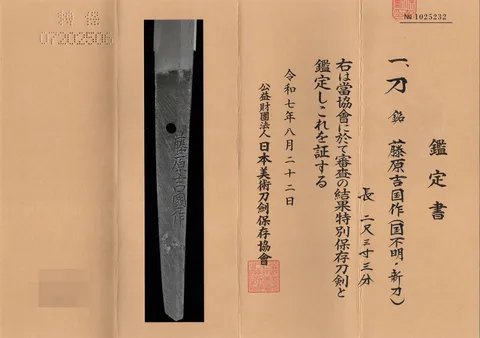 № 1025232
鑑定書
一、刀 銘 藤原吉国作(国不明・新刀)
長 二尺三寸三分
右は當協會に於て審査の結果特別保存刀劍と
鑑定しこれを証する
令和七年八月二十二日
公益財團法人 日本美術刀劍保存協會
藤原吉國作
07202506